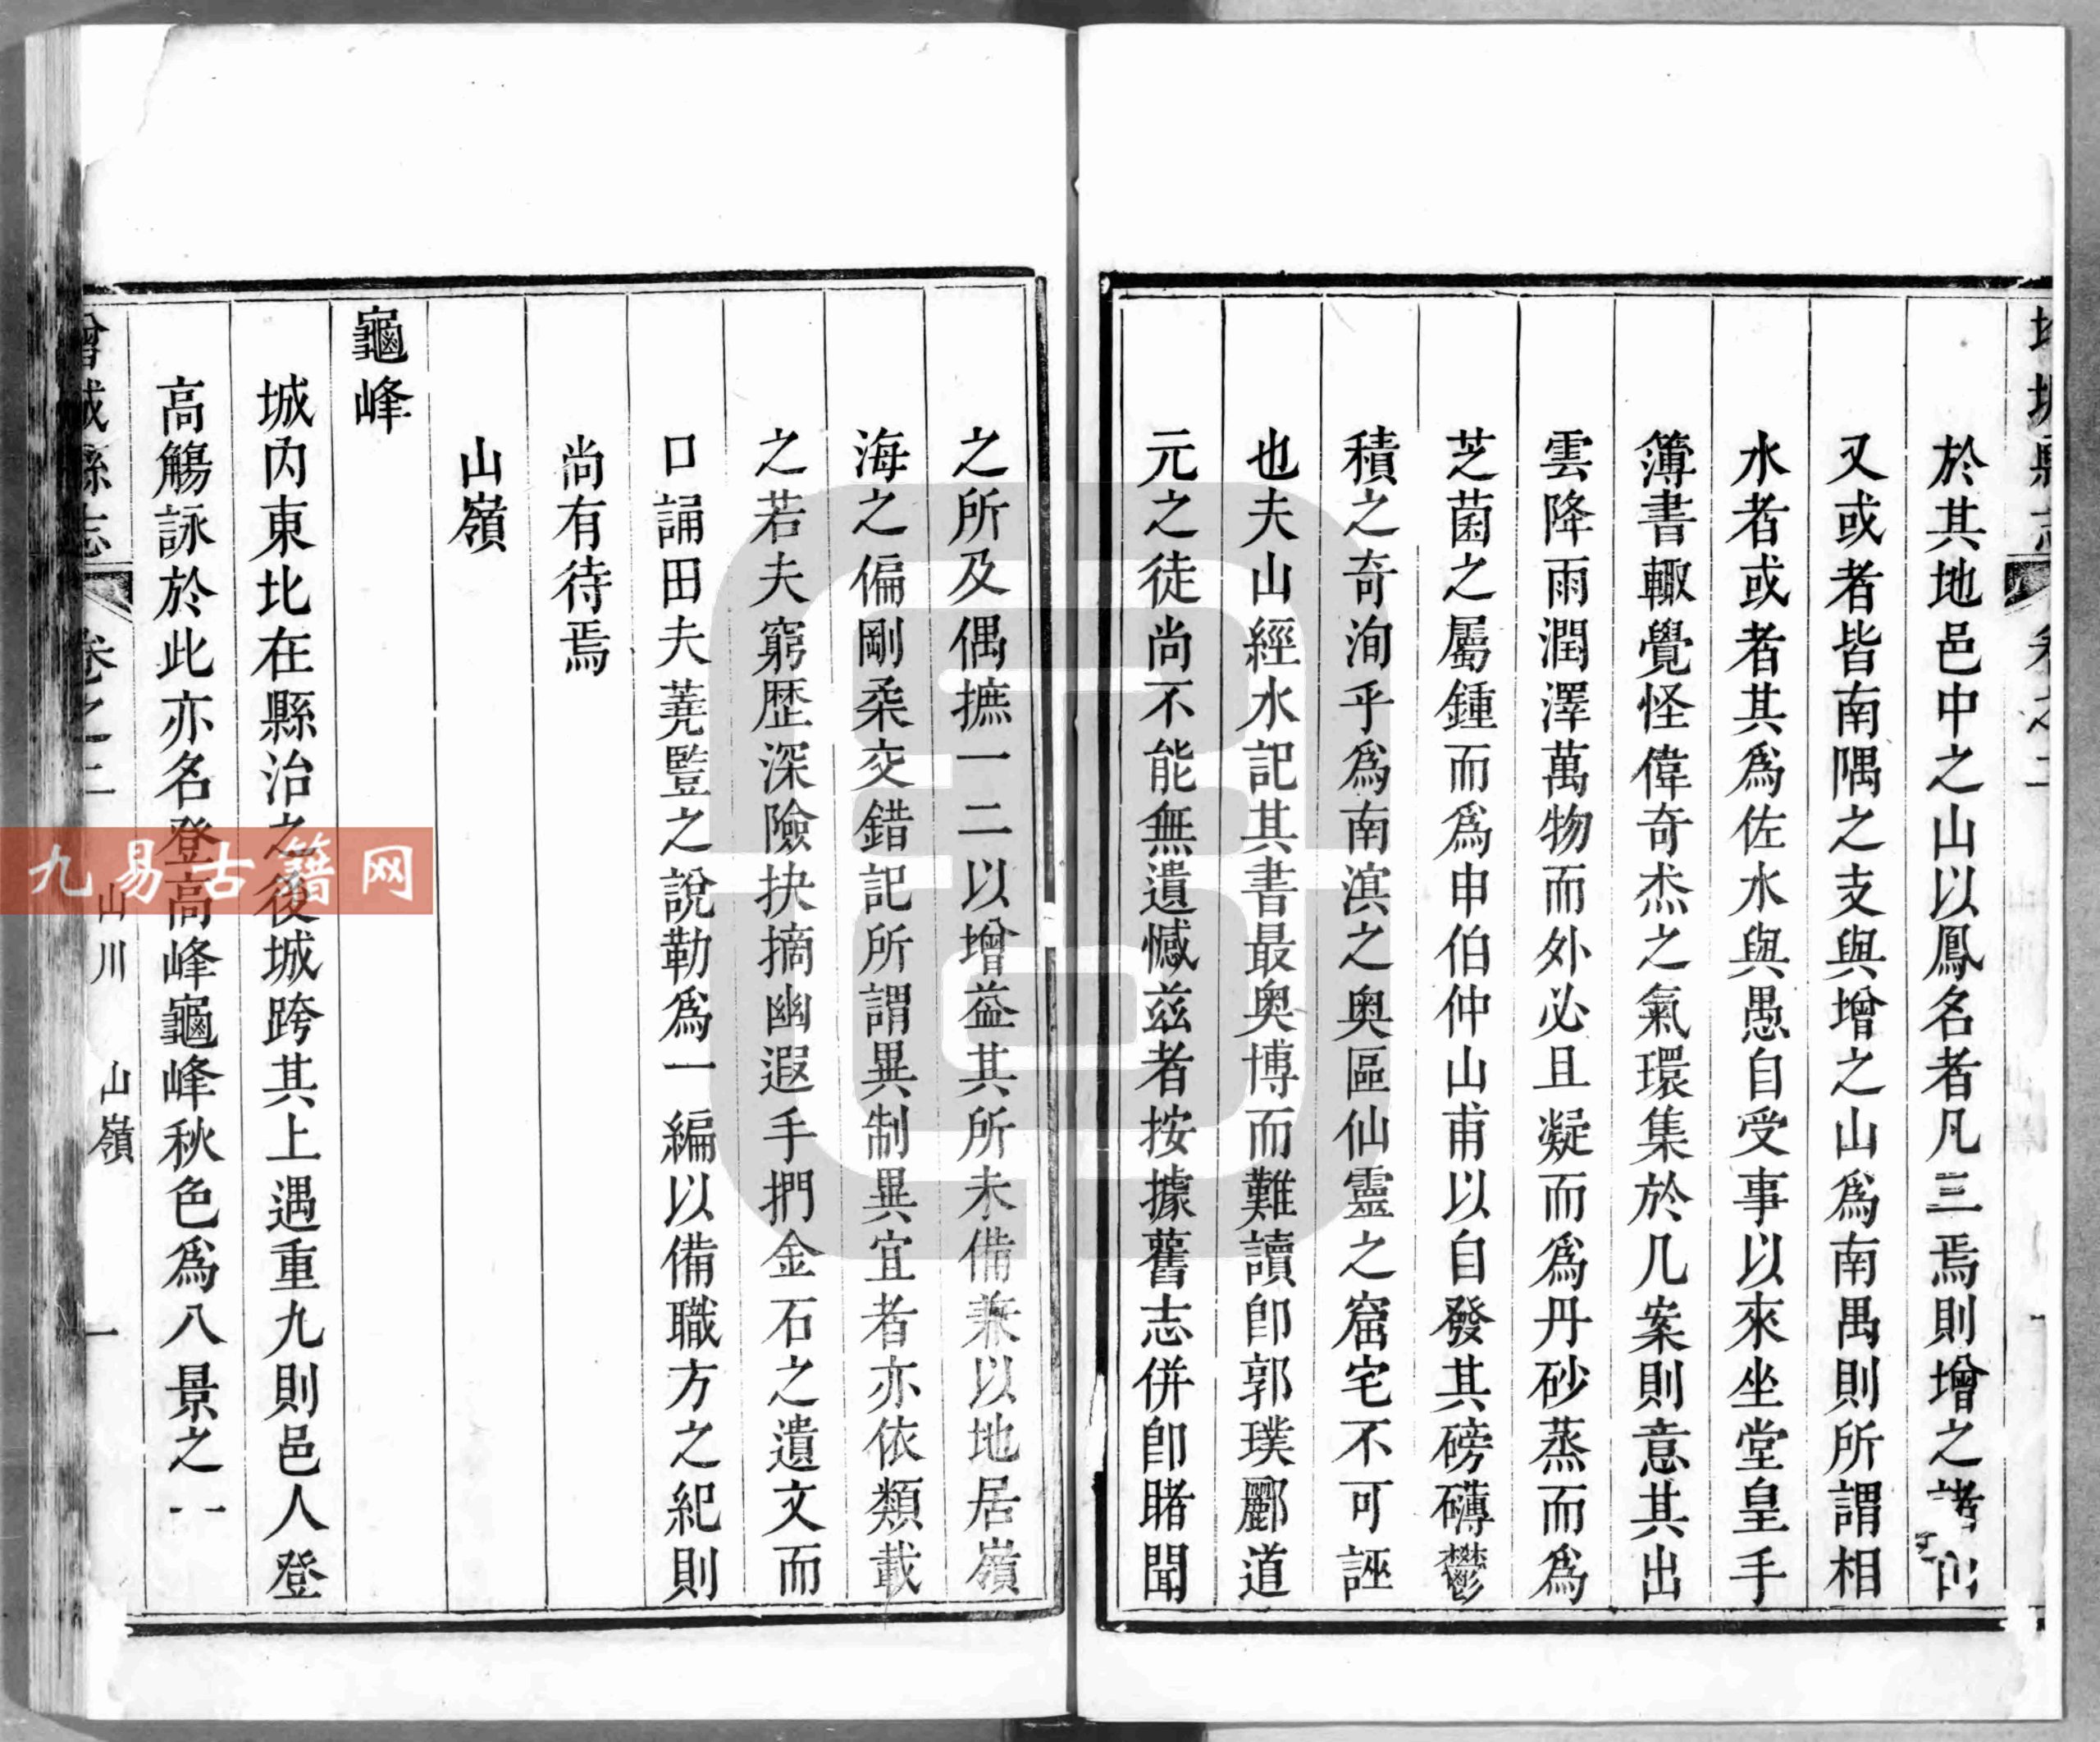 於其地邑中之山以鳳名者凡三焉則增之諸
又或者皆南隅之支與增之山爲南禺則所謂相
水者或者其爲佐水與愚自受事以來坐堂皇手
簿書輙覺怪偉奇杰之氣環集於几案則意其出
雲降雨潤澤萬物而外必且凝而爲丹砂蒸而爲
芝菌之屬鍾而爲申伯仲山甫以自發其磅礴鬱
積之奇洵乎爲南濵之奥區仙靈之窟宅不可誣
也夫山經水記其書最奥博而難讀卽郭璞酈道
元之徒尚不能無遺憾兹者按據舊志併卽睹聞
之所及偶摭一二以增益其所未備兼以地居嶺
海之偏剛柔交錯記所謂異制異宜者亦依類載
之若夫窮歴深險抉摘幽遐手捫金石之遺文而
口誦田夫蕘豎之說勒爲一編以備職方之紀則
尚有待焉
山嶺
龜峰
城內東北在縣治之後城跨其上遇重九則邑人登
高觴詠於此亦名登高峰龜峰秋色爲八景之一
增城縣志
卷之二
山川
山嶺
一
九易古籍网